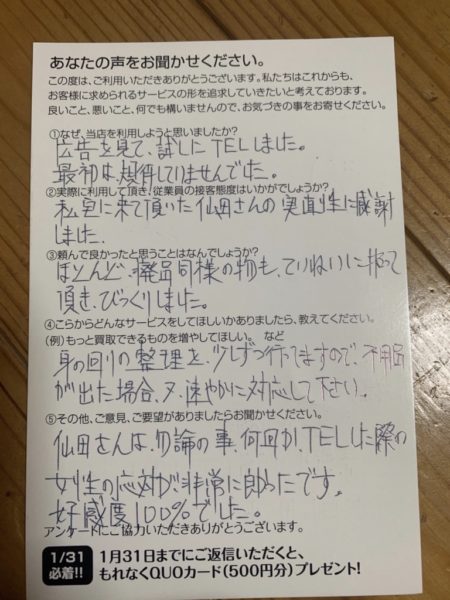 あなたの声をお聞かせください。
この度は、ご利用いただきありがとうございます。私たちはこれからも、
お客様に求められるサービスの形を追求していきたいと考えております。
良いこと、悪いこと、何でも構いませんので、お気づきの事をお寄せください。
①なぜ、当店を利用しようと思いましたか?
広告を見て、試しにTELしました。
最初は期待していませんでした。
②実際に利用して頂き、従業員の接客態度はいかがでしょうか?
私宅に来て頂いた仙田さんの実直性に感謝
しました.
③頼んで良かったと思うことはなんでしょうか?
ほとんど、廃品同様の物も、ていねいに扱って
頂き、びっくりしました。
④こらからどんなサービスをしてほしいかありましたら、教えてください。
(例)もっと買取できるものを増やしてほしい。 など
身の回りの整理を、少しずつ行てますので、不用品
が出た場合、又、速やかに対応して下さい。
⑤その他、ご意見、ご要望がありましたらお聞かせください。
仙田さんは、勿論の事、何回か、TELした際の
女性の応対が、非常に良かったです。
好感度100%でした。
アンケートにご協力いただきありがとうございます。
1/31
必着!!
1月31日までにご返信いただくと、
もれなくQUOカード(500円分)プレゼント!